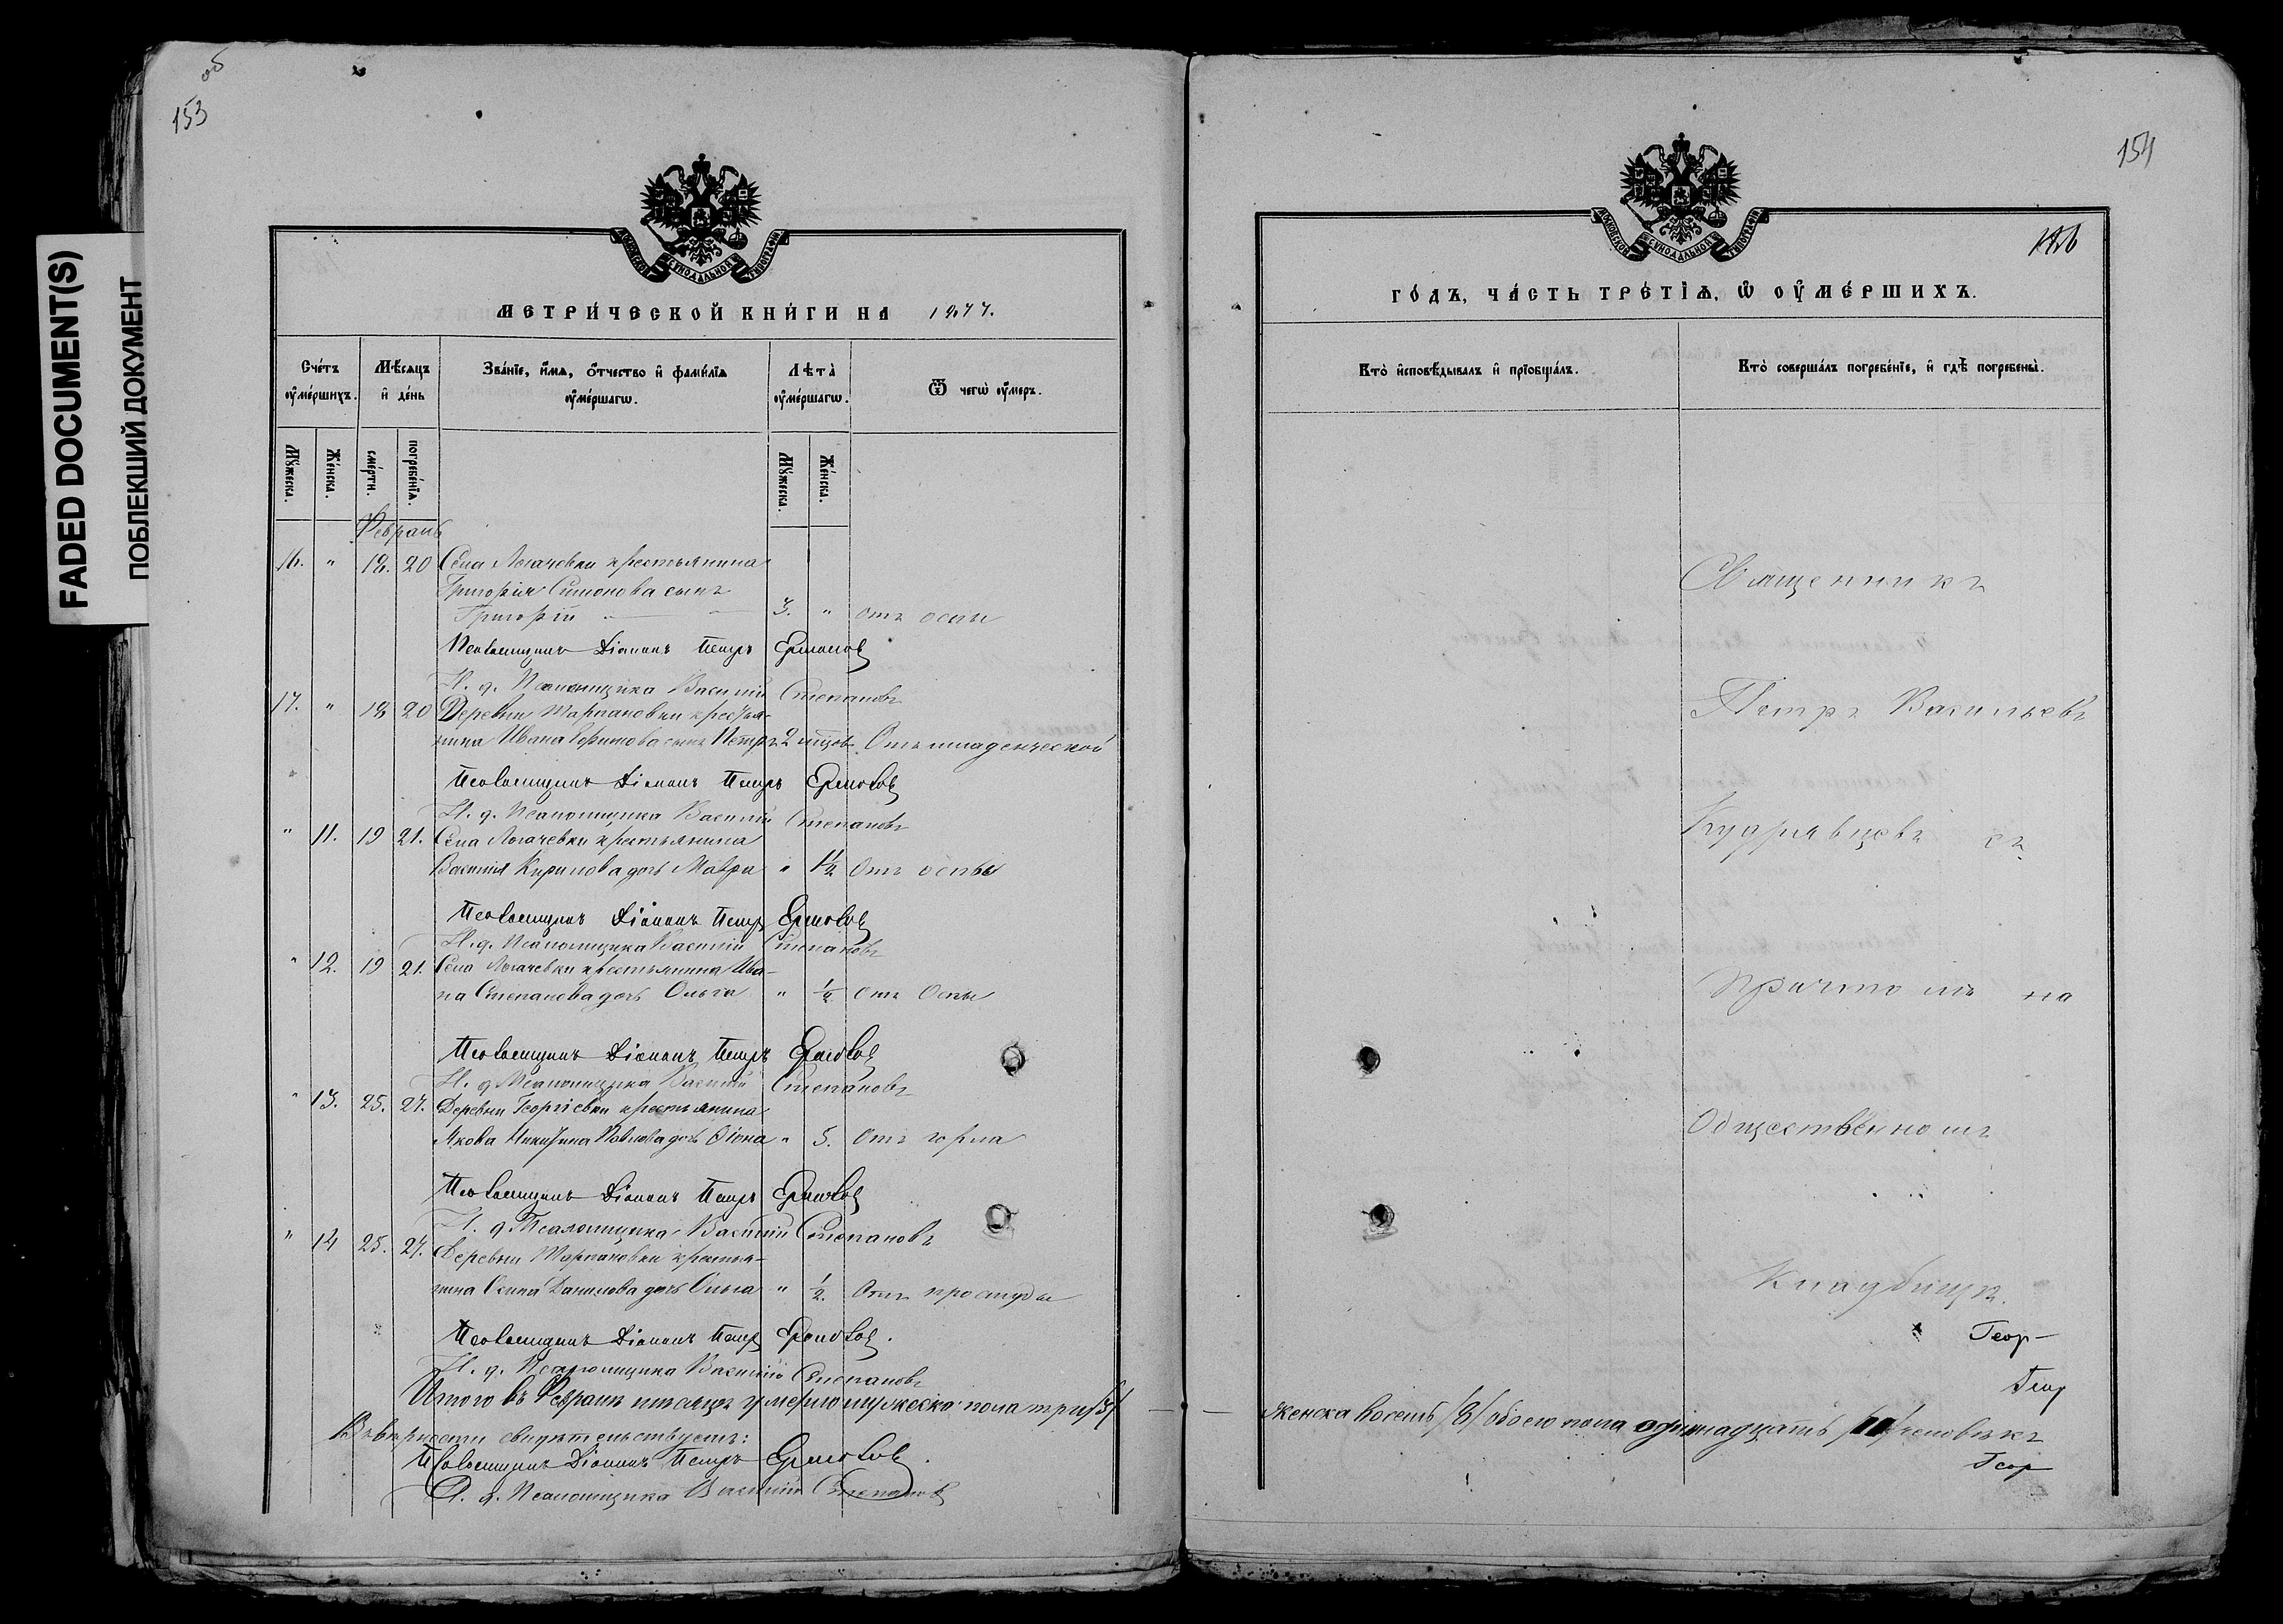 FADED DOCUMENT(S)
ПОБЛЕКШИЙ ДОКУМЕНТ
об
153
МЕТРИ́ЧЕСКОЙ КНИ́ГИ НА 1877.
Сче́тъ ᲂу҆ме́ршихъ.
Мѣ́сяцъ и҆ де́нь
Зва́нїе, и҆́мѧ, ѻ҆́тчество и҆ фами́лїѧ ᲂу҆ме́ршагѡ.
Лѣта̀ ᲂу҆ме́ршагѡ.
Ѿ чегѡ̀ ᲂу҆́меръ.
Мꙋ́жеска.
Же́нска.
сме́рти.
погребе́нїѧ.
Мꙋ́жеска.
Же́нска.
Февраль
16. " 18. 20 Села Логачевки крестьянина
Григорія Симонова сынъ
Григорій 3. " отъ оспы
Псаломщикъ Діаконъ Петръ Ермоловъ
И. д. Псаломщика Василій Степановъ
17. " 18 20 Деревни крестья-
нина Ивана сынъ Петръ 2 мѣсов. Отъ младенческой
Псаломщикъ Діаконъ Петръ Ермоловъ
И. д. Псаломщика Василій Степановъ
" 11. 19 21. Села Логачевки крестьянина
Василія Кирилова дочь Мавра " 1½ Отъ оспы
Псаломщикъ Діаконъ Петръ Ермоловъ
И. д. Псаломщика Василій Степановъ
" 12. 19 21. Села Логачевки крестьянина Ива-
на Степанова дочь Ольга " ½ Отъ Оспы
Псаломщикъ Діаконъ Петръ Ермоловъ
И. д. Псаломщика Василій Степановъ
" 13. 25. 27. Деревни Георгіевки крестьянина
Якова Никитина Павлова дочь " 5. Отъ горла
Псаломщикъ Діаконъ Петръ Ермоловъ
И. д. Псаломщика Василій Степановъ
" 14 25. 27. Деревни крестья-
нина Данилова дочь Ольга " ½. Отъ простуды
Псаломщикъ Діаконъ Петръ Ермоловъ.
И. д. Псаломщика Василій Степановъ
Итого въ Февралѣ мѣсяцѣ умерло мужеска пола три /3/
Вѣрности свидѣтельствуемъ:
Псаломщикъ Діаконъ Петръ Ермоловъ.
И. д. Псаломщика Василій Степановъ
154
ГО́ДЪ, ЧА́СТЬ ТРЕ́ТЇѦ, Ѡ҆ ᲂУ҆МЕ́РШИХЪ.
Кто̀ и҆сповѣ́дывалъ и҆ прїобща́лъ.
Кто̀ соверша́лъ погребе́нїе, и҆ гдѣ̀ погребены̀.
Священникъ
Петръ Васильевъ
Кудрявцевъ съ
причтомъ на
Общественномъ
кладбищѣ.
Геор-
Геор
женска восемь /8/ обоего пола одиннадцать /11/ человѣкъ
Геор